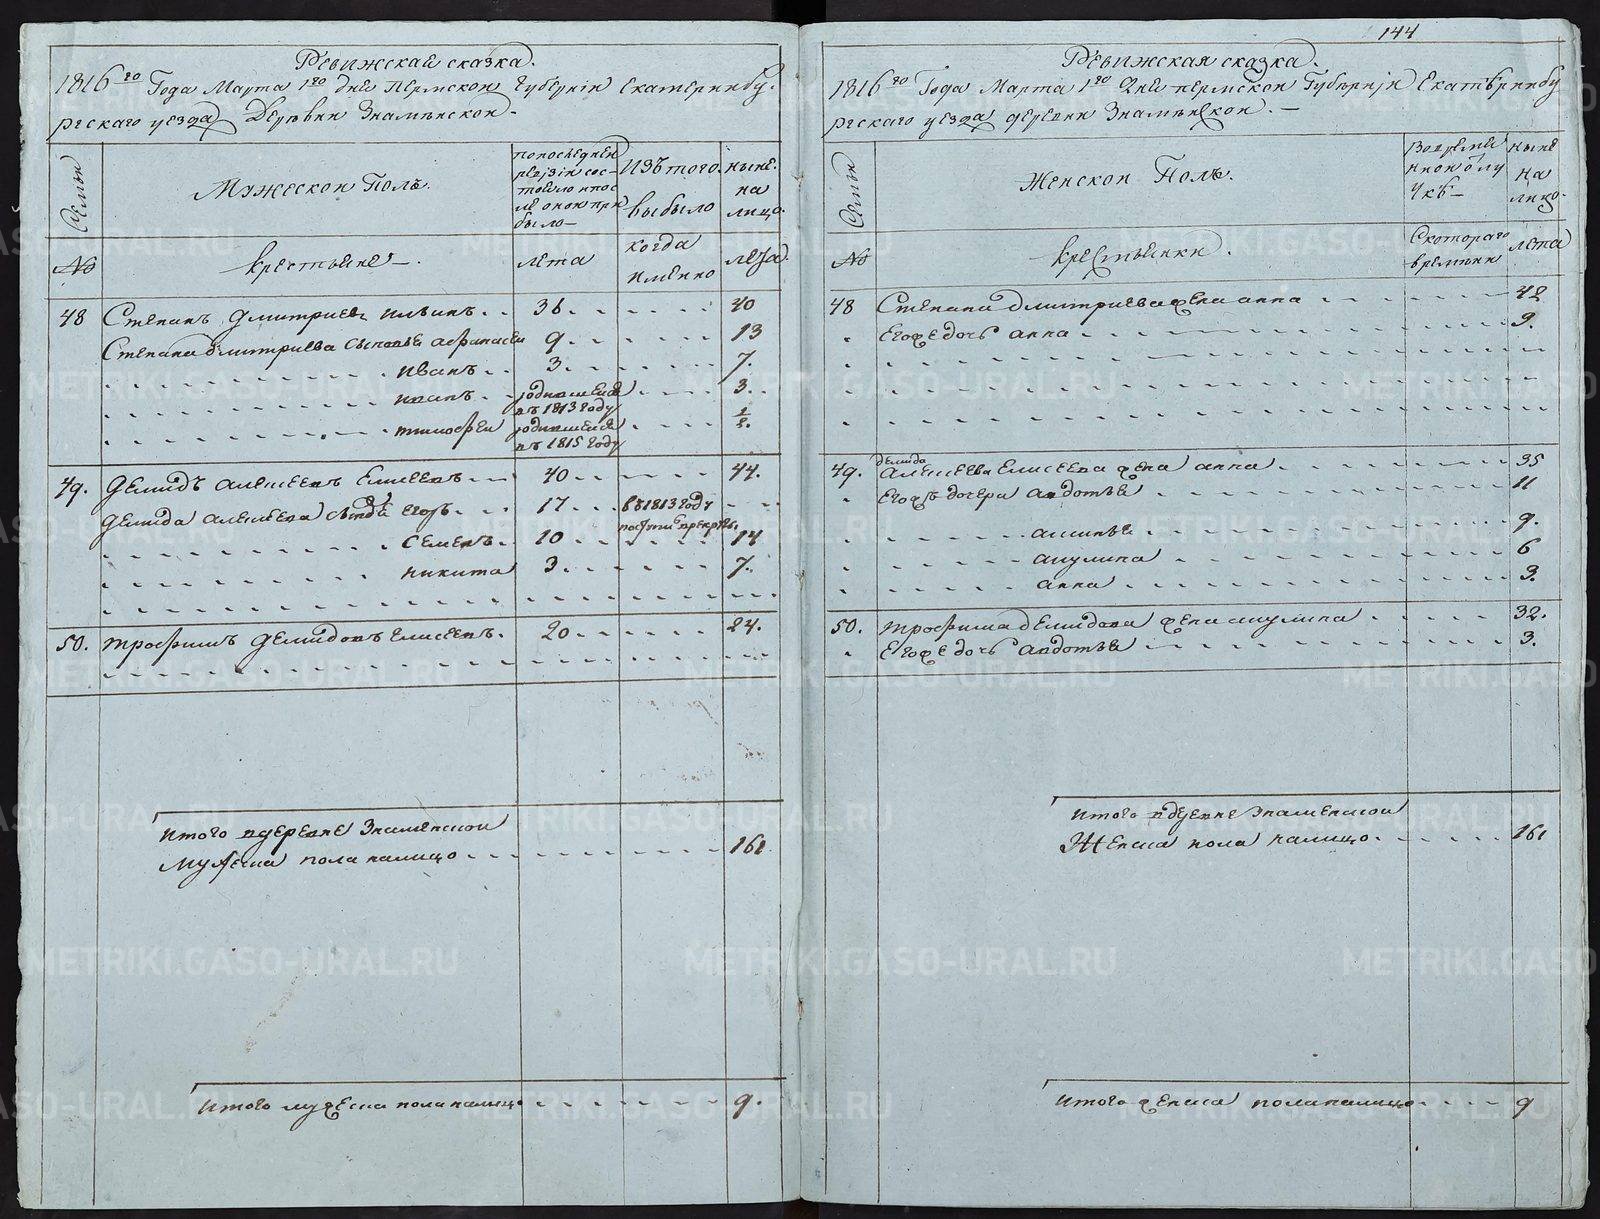 Ревижская сказка.
1816го Года Марта 1го дне Пермской Губернiи Екатеринбу-
ргскаго уезда Деревни Знаменской.
Семьи
Мужеской Полъ.
попоследнеи ревiзiи состояло ипосле оной прибыло
Изъ того выбыло
ныне на лицо.
№
крестьяне
лета
когда имянно
лета
48 Степанъ Дмитриевъ Ильинъ 36 40
Степана Дмитриева сыновья Афанасеи 9 13
иванъ 3 7.
иванъ родившейся въ 1813 году 3.
тимофеи родившейся въ 1815 году 1/2.
49. Демидъ Алексеевъ Елисеевъ 40 44.
Демида Алексеева сынъ Егоръ 17 въ 1813 году
Семенъ 10 14
никита 3 7.
50. трофимъ Демидовъ Елисеевъ. 20 24.
итого вдеревне Знаменской
Мужеска пола налицо 161
Итого мужеска пола налицо 9.
144
Ревижская сказка.
1816го Года Марта 1го Дне пермской Губернiи Екатеринбу
ргскаго уезда деревни Знаменской.
Семьи
Женской Полъ.
Вовременной отлучкъ
ныне на лицо.
№
крестьянки.
Скотораго времяни
лета
48 Степана Дмитриева жена анна 42
Егоже дочь анна 9.
49. Демида Алексеева Елисеева жена анна 35
Егожъ дочери авдотья 11
аксинья 9.
акулина 6
анна 3.
50. трофима демидова жена акулина 32.
Егоже дочь авдотья 3.
итого вдеревне Знаменской
Женска пола налицо 161
Итого женска пола налицо 9
METRIKI.GASO-URAL.RU